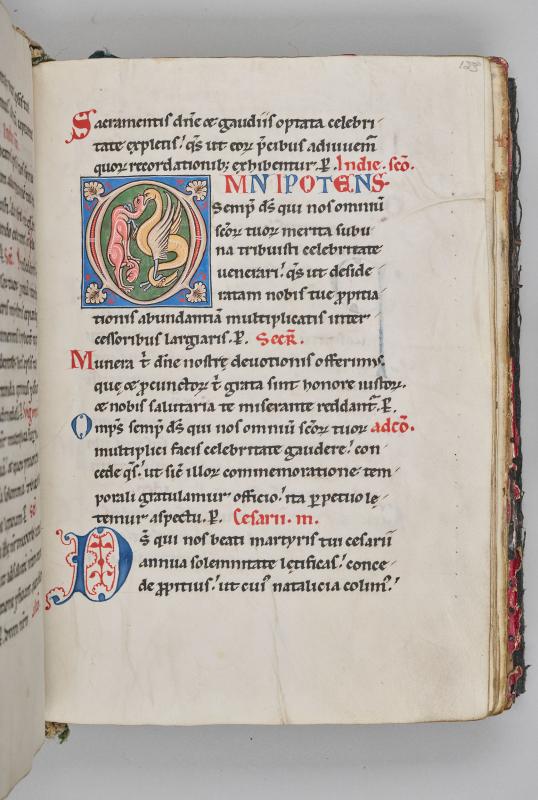 123
Sacramentis dñe & gaudiis optata celebri-
tate expletis! qs ut eor p̃cibus adiuuem̃
quor recordationib; exhibentur. P̱. In die scõ.
OMNIPOTENS
Semp̃ ds qui nos omniũ
scõr tuor merita sub u
na tribuisti celebritate
uenerari! qs ut deside
ratam nobis tuę p̱pitia
tionis abundantiã multiplicatis inter-
cessoribus largiaris. P̱. Secr̃.
Munera t̃ dñe nostrę deuotionis offerim;
quę & p̱ cunctor t̃ grata sint honore iustor.
& nobis salutaria te miserante reddant̃. P̱.
Omps semp̃ ds qui nos omniũ scõr tuor ad cõ.
multiplici facis celebritate gaudere! con-
cede qs! ut sic̃ illor commemoratione tem-
porali gratulamur officio! ita p̱petuo lę-
temur aspectu. P̱. Cesarii. m.
Ds̃ qui nos beati martyris tui cesarii
annua solemnitate lętificas! conce-
de p̱pitius! ut cui' natalicia colim'!